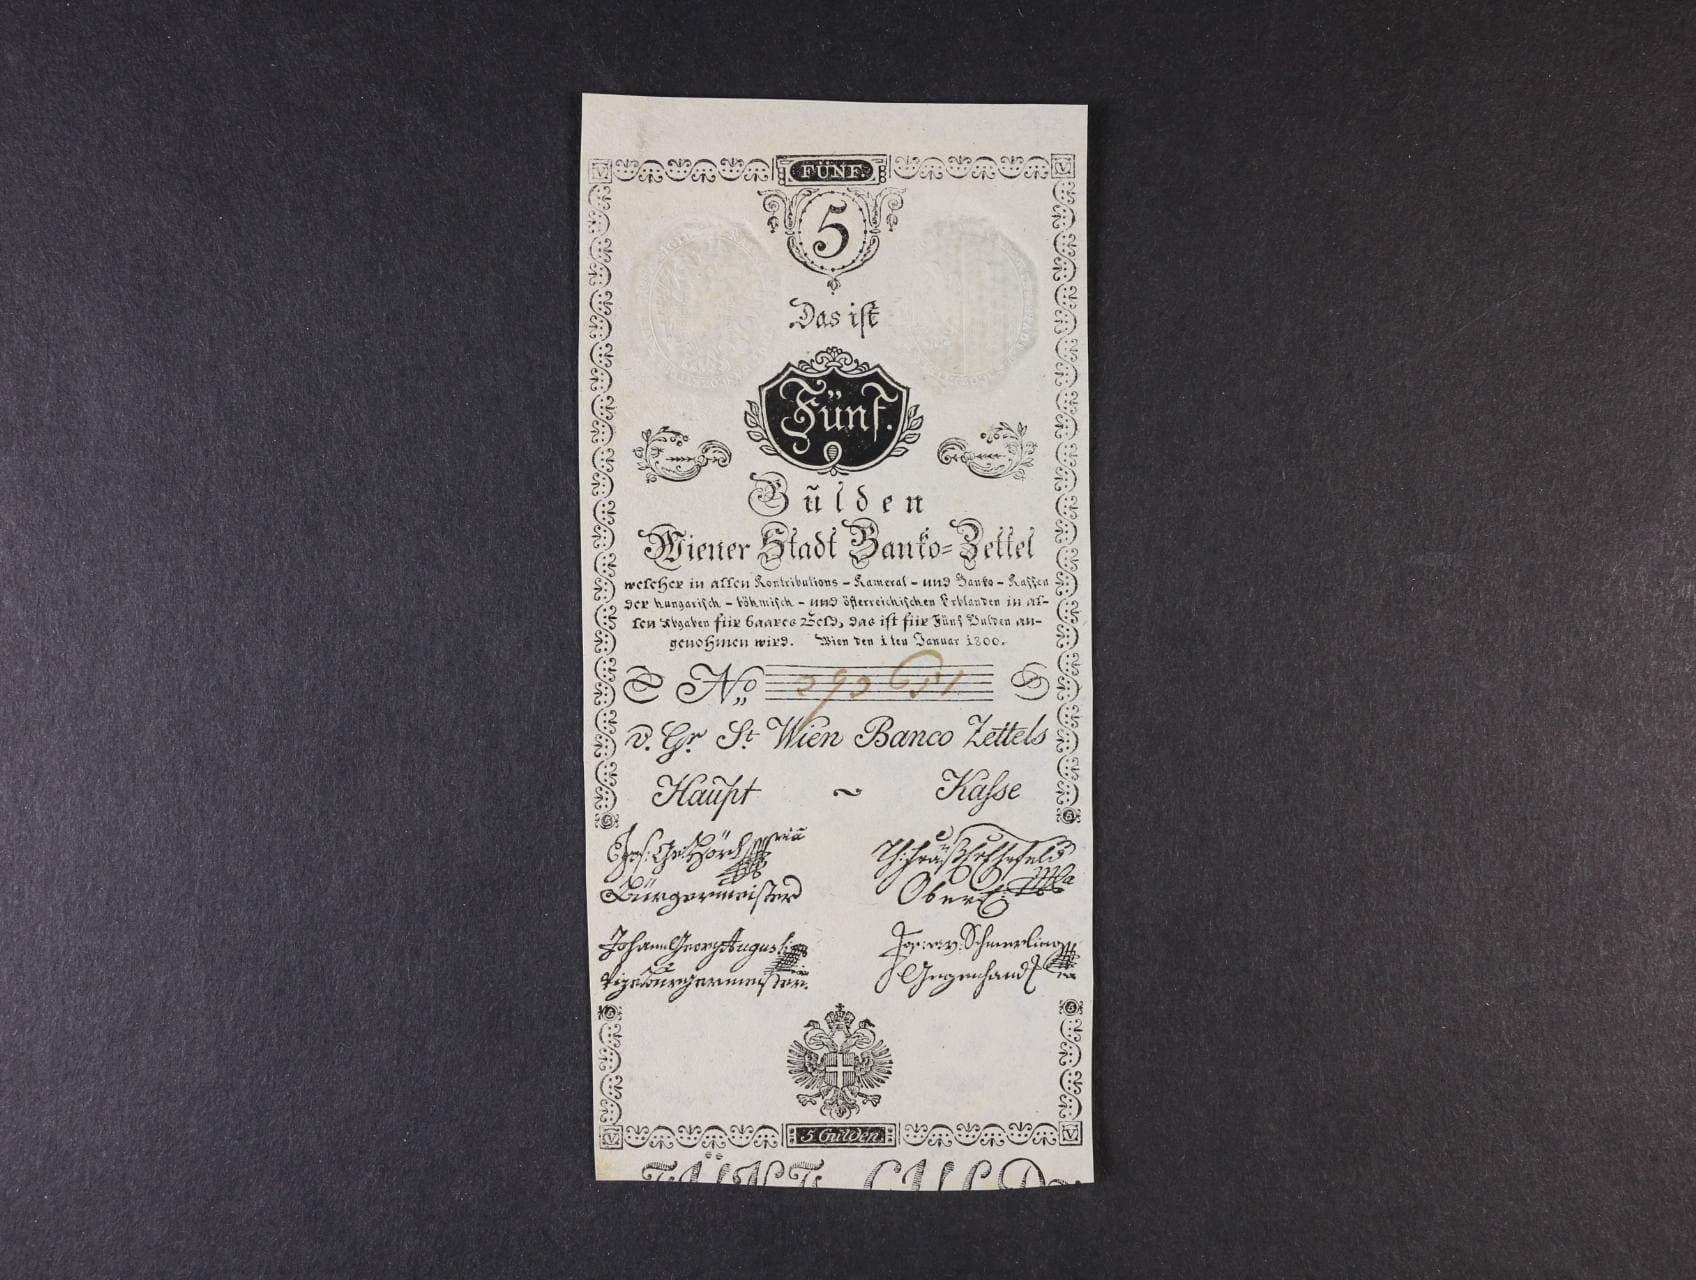 V FÜNF. V
5
Das ist
Fünf.
Gülden
Wiener Stadt Banko-Zettel
welcher in allen Kontributions - Kameral - und Banko - Kassen
der hungarisch - böhmisch - und österreichischen Erblanden in al-
len Abgaben für baares Geld, das ist für Fünf Gulden an-
genohmen wird. Wien den 1ten Januar 1800.
No 292651
v. Gr St Wien Banco Zettels
Haupt ~ Kasse
Bürgermeister Ober
Johann Georg Augusti Jos: v. Schmerling
Vizebürgermeister. Gegenhand
V 5 Gulden. V
FÜNF GULD